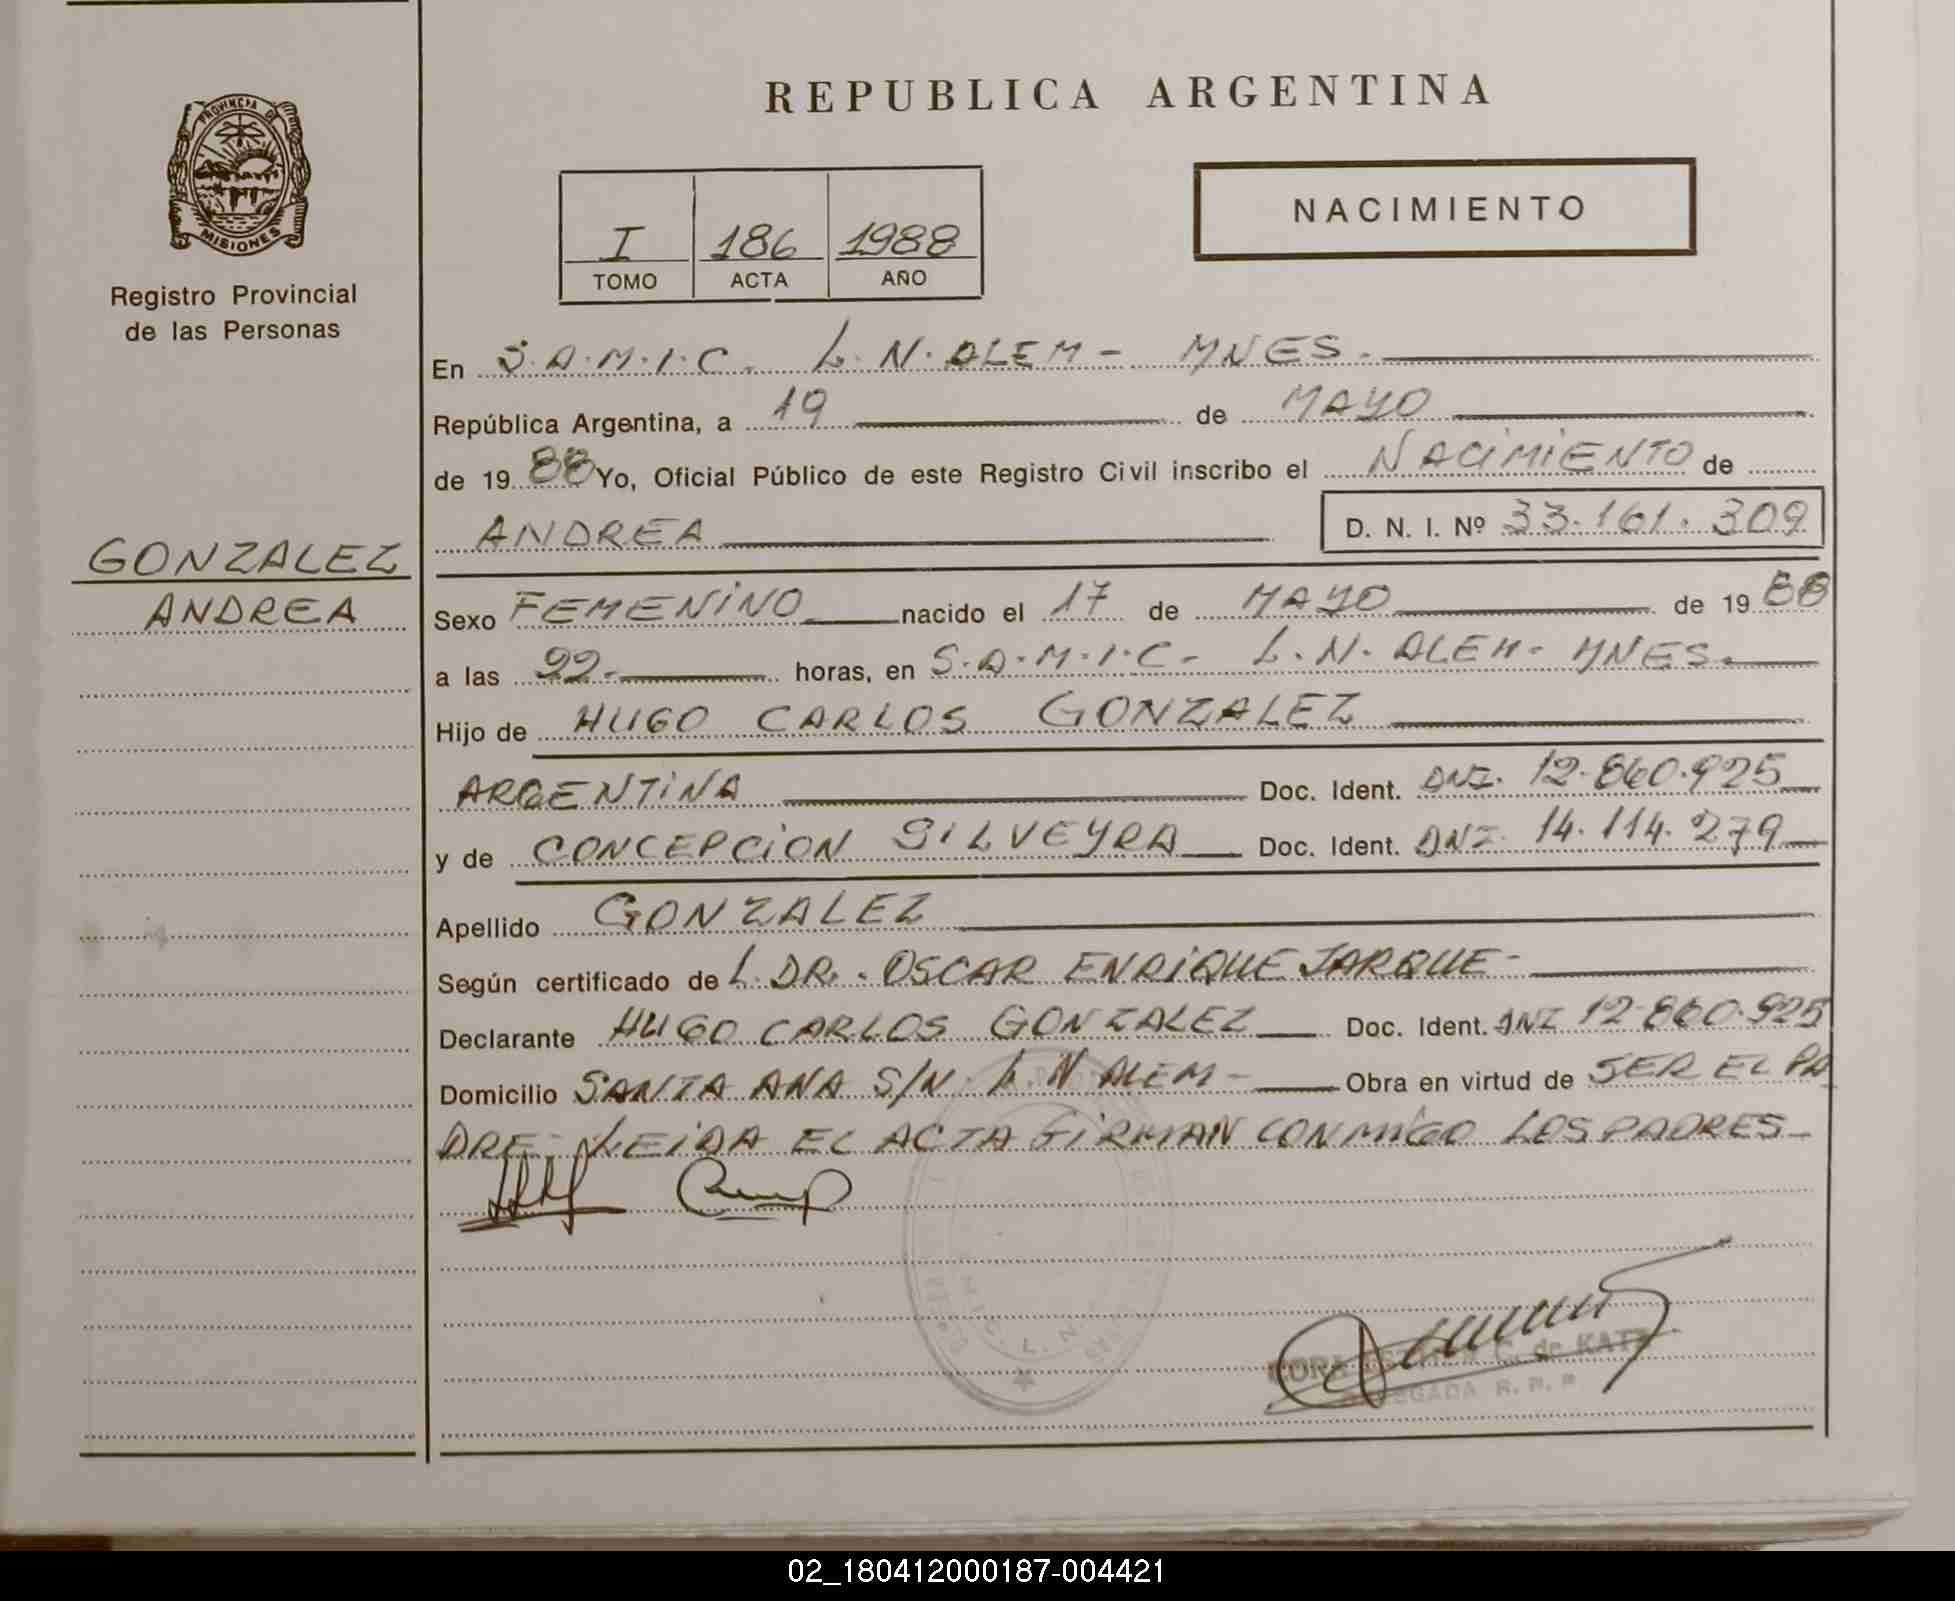 REPUBLICA ARGENTINA
PROVINCIA DE
MISIONES
Registro Provincial
de las Personas
I 186 1988
TOMO ACTA AÑO
NACIMIENTO
GONZALEZ
ANDREA
En S.A.M.I.C. L.N.ALEM - MNES.
República Argentina, a 19 de MAYO
de 19 88 Yo, Oficial Público de este Registro Civil inscribo el NACIMIENTO de
ANDREA D. N. I. Nº 33.161.309
Sexo FEMENINO nacido el 17 de MAYO de 19 88
a las 22.- horas, en S.A.M.I.C- L.N. ALEM- MNES.
Hijo de HUGO CARLOS GONZALEZ
ARGENTINA Doc. Ident. DNI. 12.860.925
y de CONCEPCION SILVEYRA Doc. Ident. DNI. 14.114.279
Apellido GONZALEZ
Según certificado de L. DR. OSCAR ENRIQUE JARQUE-
Declarante HUGO CARLOS GONZALEZ Doc. Ident. DNI 12.860.925
Domicilio SANTA ANA S/N. L N ALEM- Obra en virtud de SER EL PA
DRE- LEIDA EL ACTA FIRMAN CONMIGO LOS PADRES-
C. de KATZ
R. P. P.
02_180412000187-004421